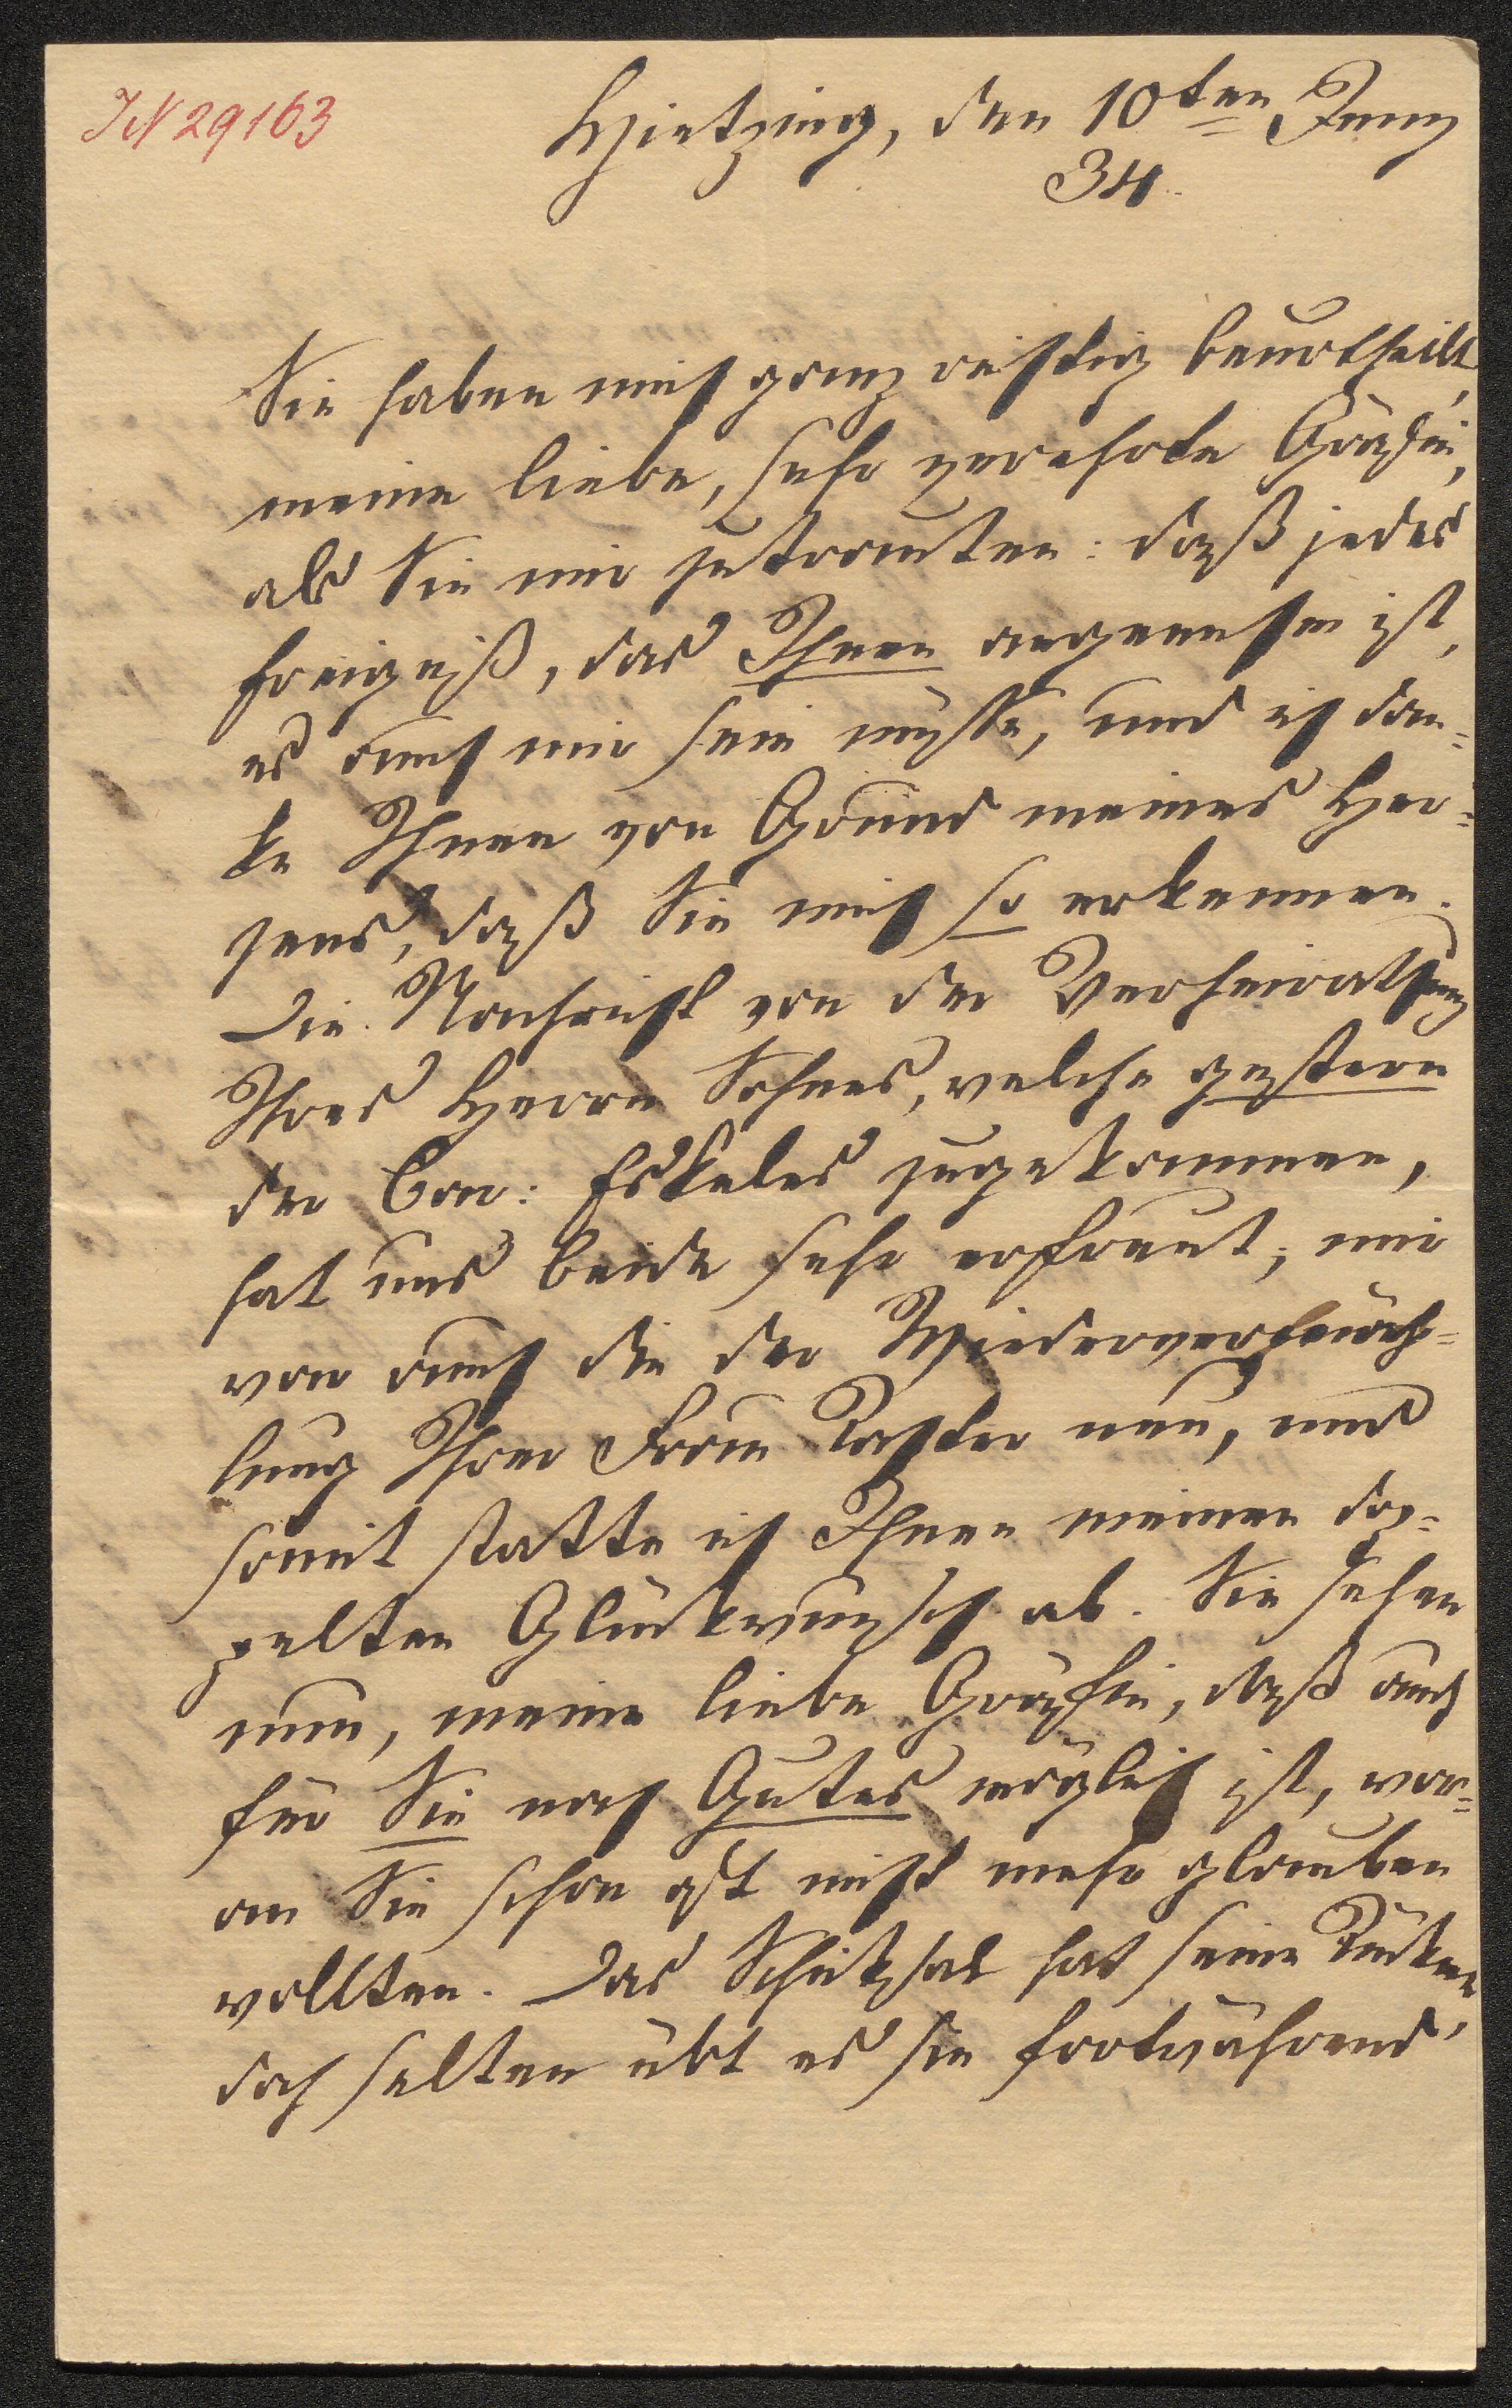 IN 29163
Hietzing, den 10ten Juny
34.
Sie haben mich ganz richtig beurtheilt,
meine liebe, sehr verehrte Gräfin,
als Sie mir zutrauten: daß jedes
Ereigniß, das Ihnen angenehm ist,
es auch mir sein müsse, und ich dan=
ke Ihnen von Grund meines Her=
zens, daß Sie mich so erkennen.
Die Nachricht von der Verheirathung
Ihres Herrn Sohnes, welche gestern
der Bar: Eskeles zugekommen,
hat uns beide sehr erfreut; mir
war auch die der Wiederverehlich=
lung Ihrer Frau Tochter neu, und
somit statte ich Ihnen meinen dop=
pelten Glückwunsch ab. Sie sehen
nun, meine liebe Gräfin, daß auch
für Sie noch Gutes möglich ist, wor=
an Sie schon oft nicht mehr glauben
wollten. Das Schicksal hat seine Tücken,
doch selten übt es sie fortwährend